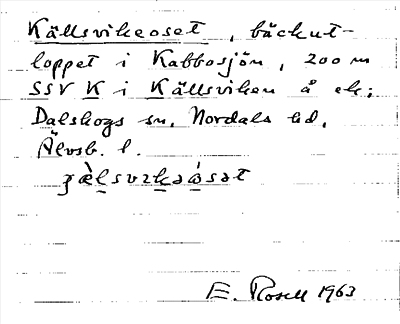 Källsvikeoset, bäckut-
loppet i Kabbosjön, 200 m
SSV K i Källsviken å ek;
Dalskogs sn, Nordals hd,
Älvsb. l.
E. Rosell 1963